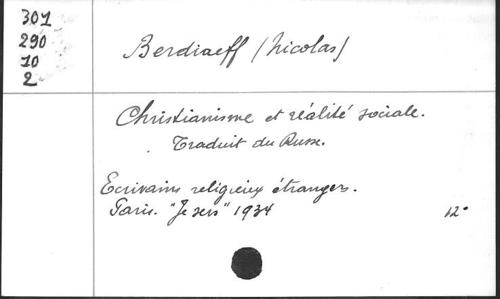 301
290
10
2
Berdiaeff (Nicolas)
Christianisme et réalité sociale.
Traduit du Russe.
Ecrivains religieux étrangers.
Paris. "Je sers" 1934
12°